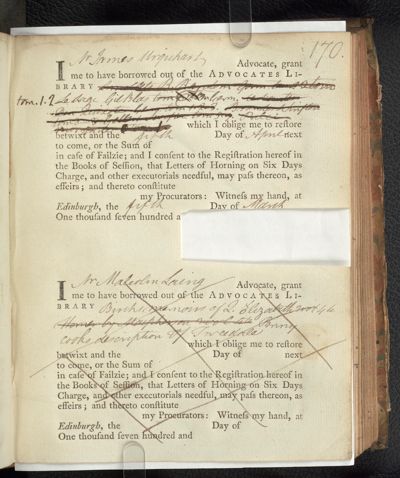 170.
I Mr James Urquhart Advocate, grant
me to have borrowed out of the ADVOCATES LI-
BRARY
tom. 1. 2 Le Sage Gil Blas
which I oblige me to reſtore
betwixt and the fifth Day of April next
to come, or the Sum of
in caſe of Failzie; and I conſent to the Regiſtration hereof in
the Books of Seſſion, that Letters of Horning on Six Days
Charge, and other executorials needful, may paſs thereon, as
effeirs; and thereto conſtitute
my Procurators: Witneſs my hand, at
Edinburgh, the fifth Day of March
One thouſand ſeven hundred a
I Mr Malcolm Laing Advocate, grant
me to have borrowed out of the ADVOCATES LI-
BRARY Birch's memoirs of Q. Elizabeth
Penny
cooks description of Tweedale
which I oblige me to reſtore
betwixt and the Day of next
to come, or the Sum of
in caſe of Failzie; and I conſent to the Regiſtration hereof in
the Books of Seſſion, that Letters of Horning on Six Days
Charge, and other executorials needful, may paſs thereon, as
effeirs; and thereto conſtitute
my Procurators: Witneſs my hand, at
Edinburgh, the Day of
One thouſand ſeven hundred and